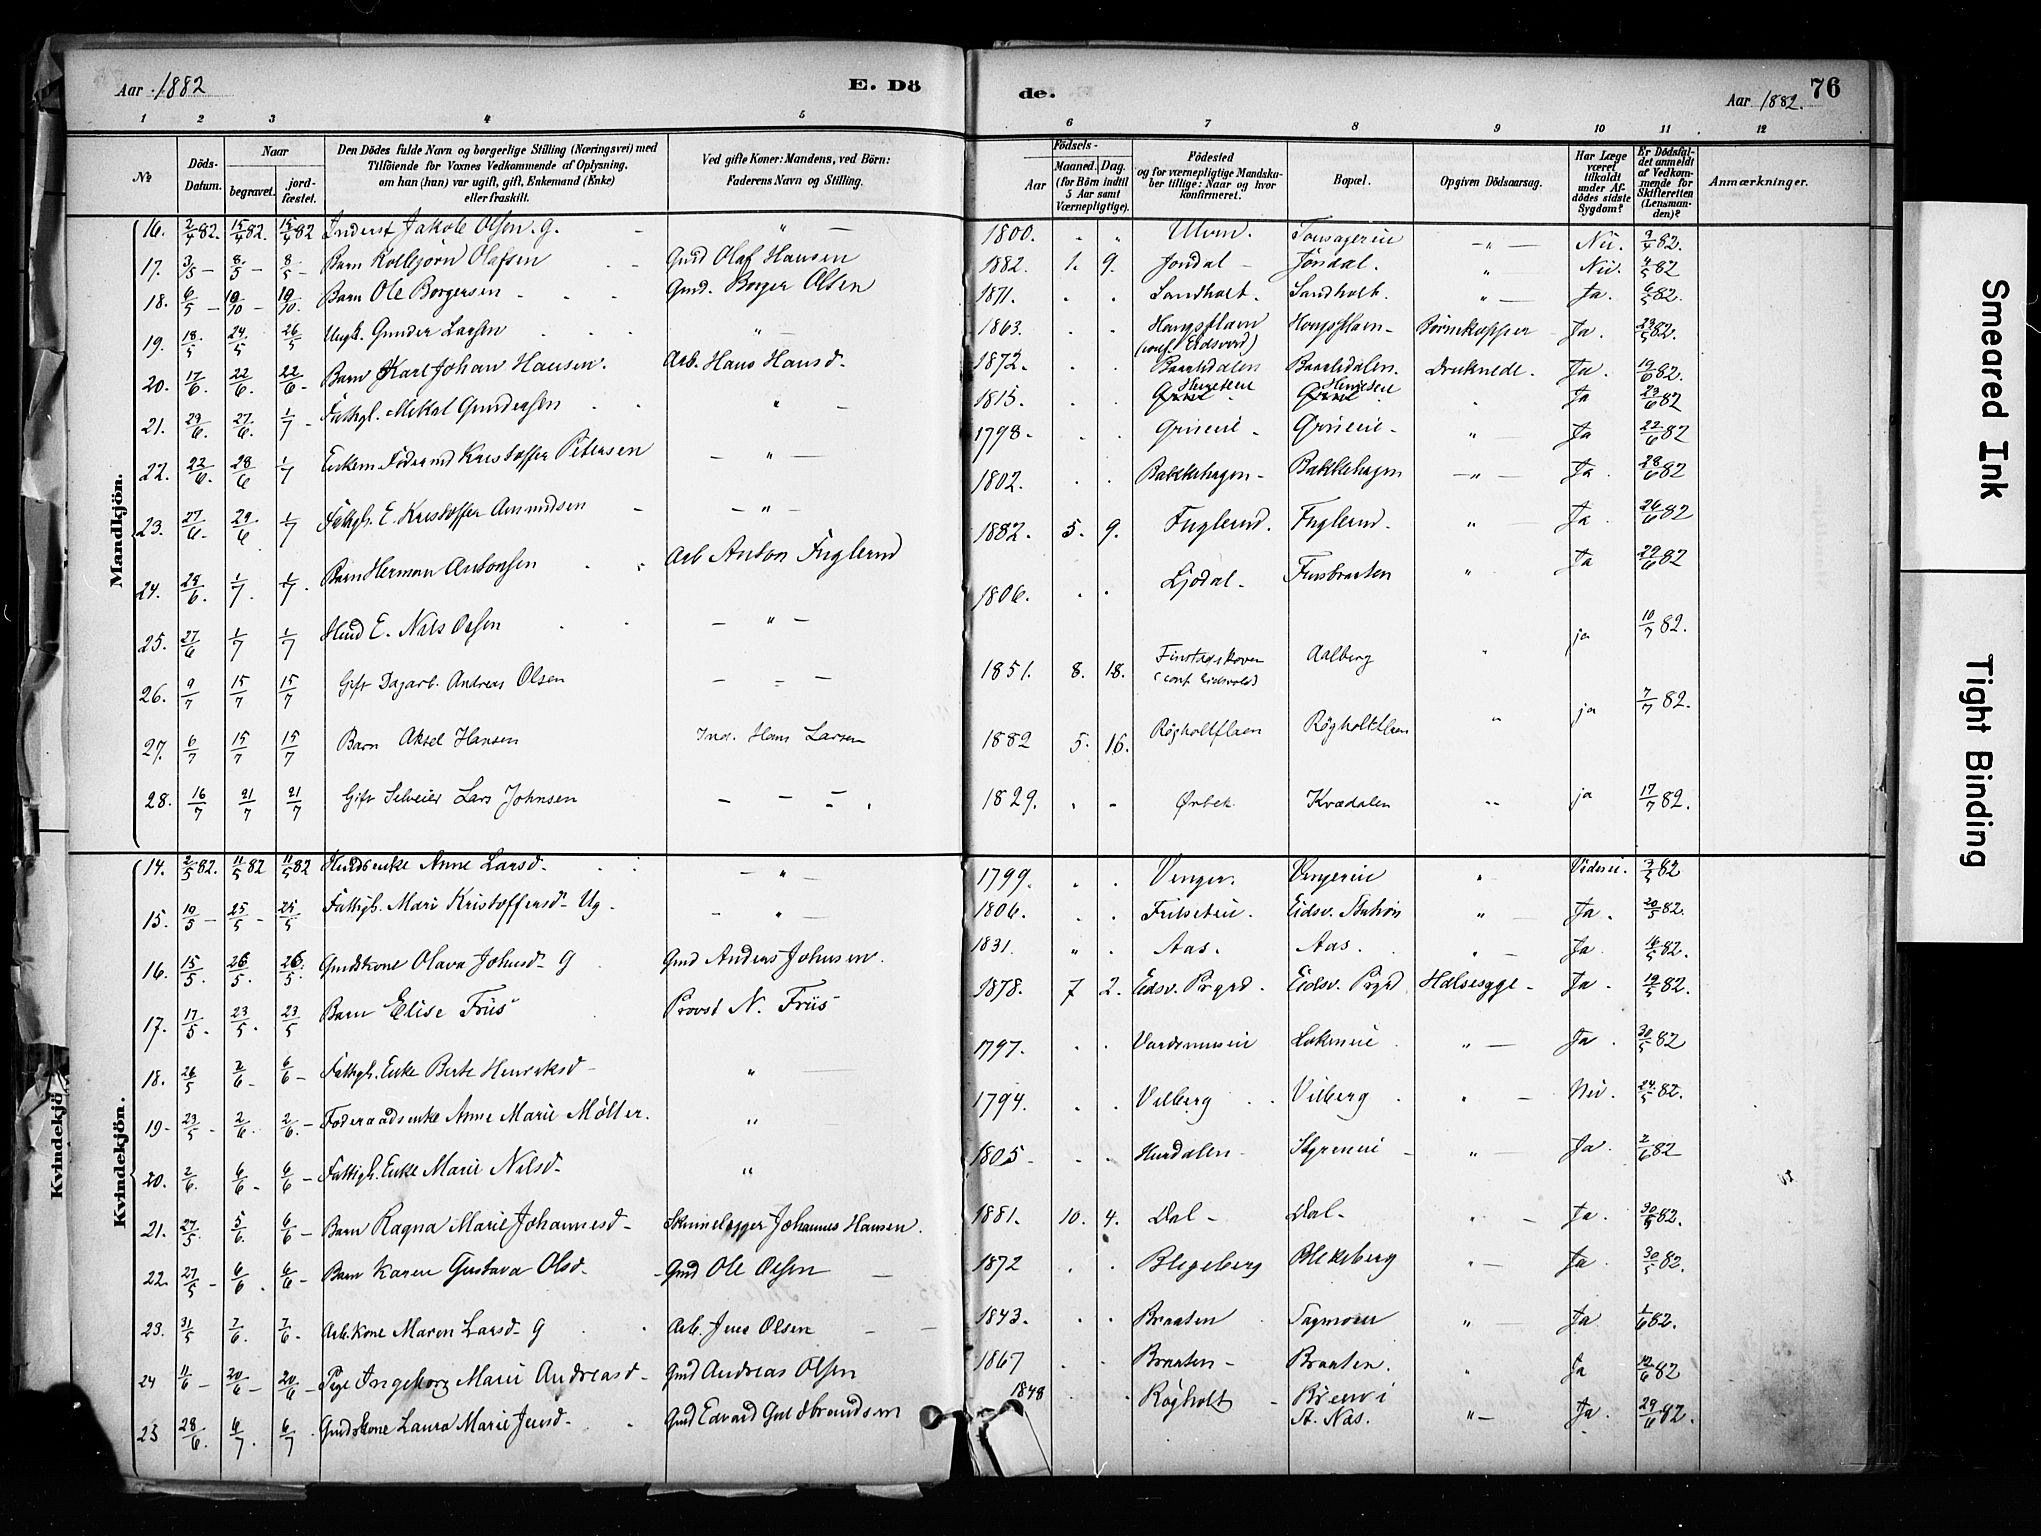 Aar 1882 E. Dö de. Aar 1882. 76
1 2 3 4 5 6 7 8 9 10 11 12
№ Döds-Datum. Naar begravet. jordfæstet. Den Dödes fulde Navn og borgerlige Stilling (Næringsvei) med Tilföiende for Voxnes Vedkommende af Oplysning, om han (hun) var ugift, gift, Enkemand (Enke) eller fraskilt. Ved gifte Koner: Mandens, ved Börn: Faderens Navn og Stilling. Födsels- Aar Maaned. Dag. (for Börn indtil 5 Aar samt Værnepligtige). Födested og for værnepligtige Mandskaber tillige: Naar og hvor konfirmeret. Bopæl. Opgiven Dödsaarsag. Har Læge været tilkaldt under Afdödes sidste Sygdom? Er Dödsfaldet anmeldt af Vedkommende for Skifteretten (Lensmanden)? Anmærkninger.
Mandkjön.
16. 2/4 82. 15/4 82. 15/4 82 Inderst Jakob Olsen. g. - " - 1800. " " Ulvin. Tonsagereie - " - Nei. 3/4 82.
17. 3/5 - 8/5 - 8/5 - Barn Kolbjörn Olafsen Gmd Olaf Hansen 1882. 1. 9. Jøndal - Jøndal. " - Nei. 4/5 82
18. 6/5 - 19/10 - 19/10 Barn Ole Borgersen Gmd. Borger Olsen 1871. Sandholt. Sandholt. " - Ja. 6/5 82.
19. 18/5 24/5 26/5 Ungk. Gunder Larsen " - 1863. (conf. Eidsvold) Børnekopper Ja. 23/5 82.
20. 17/6. 22/6. 22/6. Barn Karl Johan Hansen. Arb. Hans Hansd. 1872. Baarlidalen Baarlidalen. Druknede. Ja. 19/6 82.
21. 23/6. 27/6. 1/7 - Fattigl. Mikal Gundersen " - 1815. Ja 23/6 82
22. 22/6. 28/6 1/7 Enkem Föderaad Kristoffer Petersen - " - 1798. Grineie - Grineie - " - Ja 22/6 82
23. 27/6. 29/6 1/7 Fattigl. E. Kristoffer Amundsen - " - 1802. Bakkehagen - Bakkehagen - " - Ja. 28/6 82
24. 28/6. 1/7. 1/7. Barn Herman Antonsen Arb Anton Fuglerud 1882. 5. 9. Fuglerud. Fuglerud. " - Ja. 26/6 82
25. 27/6 1/7 1/7 Husmd E. Nils Olsen - " - 1806. Ljødal - Finsbraaten " Ja 29/6 82
26. 9/7 15/7 15/7 Gift Dagarb. Andreas Olsen - = - 1851. 8. 18. Finstadskoven (conf. Eidsvold) Aalberg " ja 10/7 82.
27. 6/7 15/7 15/7 Barn Aksel Hansen Ind. Hans Larsen 1882 5. 16. Røgholtflaen Røgholtflaen " ja 7/7 82.
28. 16/7 21/7 21/7 Gift Selveier Lars Johnsen - - = . 1829. " - Ørbek Kvædalen " ja 17/7 82.
Kvindekjön.
Kvindekjö
14. 2/5 82. 11/5 82 11/5 82 Anne Larsd. - " - 1799. Venger. Vengereie " Videreie. 3/5 82
15. 19/5 - 25/5 - 25/5 Fattigl. Mari Kristoffersd - Ug. - " - 1806. Frilseteie. Eidsv. Station " - Ja. 20/5 82.
16. 15/5. 26/5. 26/5. Gmdskone Olava Johnsd - g Gmd Anders Johnsen. 1831. " Aas. Aas. " - Ja. 16/5 82.
17. 17/5. 23/5. 23/5 Barn Elise Friis Provst N. Friis 1878. 7 2. Eidsv. Prgrd. Eidsv. Prgrd Halsesyge - Ja. 19/5 82.
18. 26/5 2/6 - 6/6 - Fattigl. Enke Berte Henriksd - " - 1797. " - Ja. 30/5 82
19 - 23/5 - 2/6. 2/6. - Föderaadsenke Anne Marie Möller. " 1794. Vilberg Vilberg " - Nei. 24/5 82.
20. 2/6. 6/6 - 6/6 - Fattigl. Enke Marie Nilsd - " 1805 - Hurdalen - Styrieie - " - Ja. 2/6 82
21. 27/5 5/6. 6/6 - Barn Ragna Marie Johannesd - Skindlægger Johannes Hansen. 1881. 10. 4. Dal - Dal - " - Ja. 30/5 82.
22. 27/5 - 6/6. 6/6 - Barn Karen Gustava Olsd. - Gmd Ole Olsen - 1872 Blegeberg Blekeberg " - Ja. 30/5 82.
23. 31/5 7/6. 7/6 - Arb. kone Maren Larsd - g Arb. Jens Olsen - - 1843. Braaten Sagmoen " - Ja. 1/6 82.
24 11/6 - 20/6 - 20/6 - Pige Ingeborg Marie Andreasd - Gmd Andreas Olsen 1867 Braaten - Braaten. " Ja 12/6 82
25 28/6. 6/7. 6/7 Gmdskone Laura Marie Jensd - Gmd Edvard Guldbrandsen 1848 Røgholt - St. Nas. " - Ja. 29/6 82.
Smeared Ink
Tight Binding